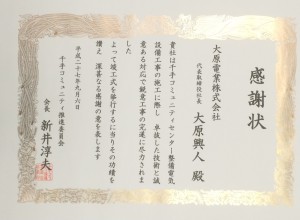 感謝状
大原電業株式会社
代表取締役社長
大原興人 殿
貴社は千手コミュニティセンター整備電気
設備工事の施工に際し 卓越した技術と誠
意ある対応で観業工事の完遂に尽力されま
した
よって竣工式を挙行するに当りその功績を
讃え 深甚なる感謝の意を表します
平成二十七年九月六日
千手コミュニティ推進委員会
会長 新井淳夫